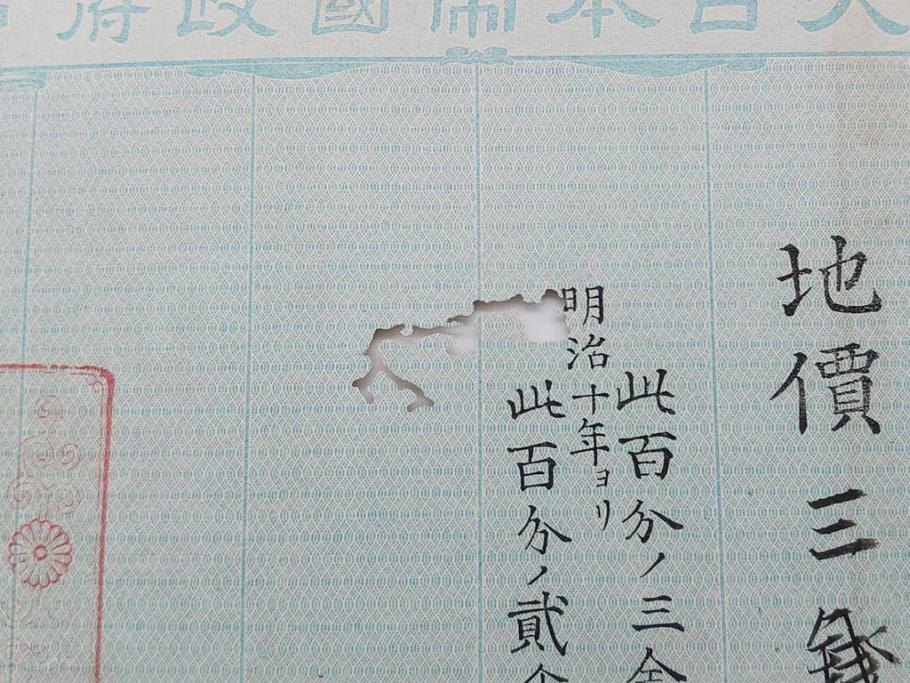 大日本帝國政府
地價三錢
此百分ノ三金
明治十年ヨリ
此百分ノ貳金